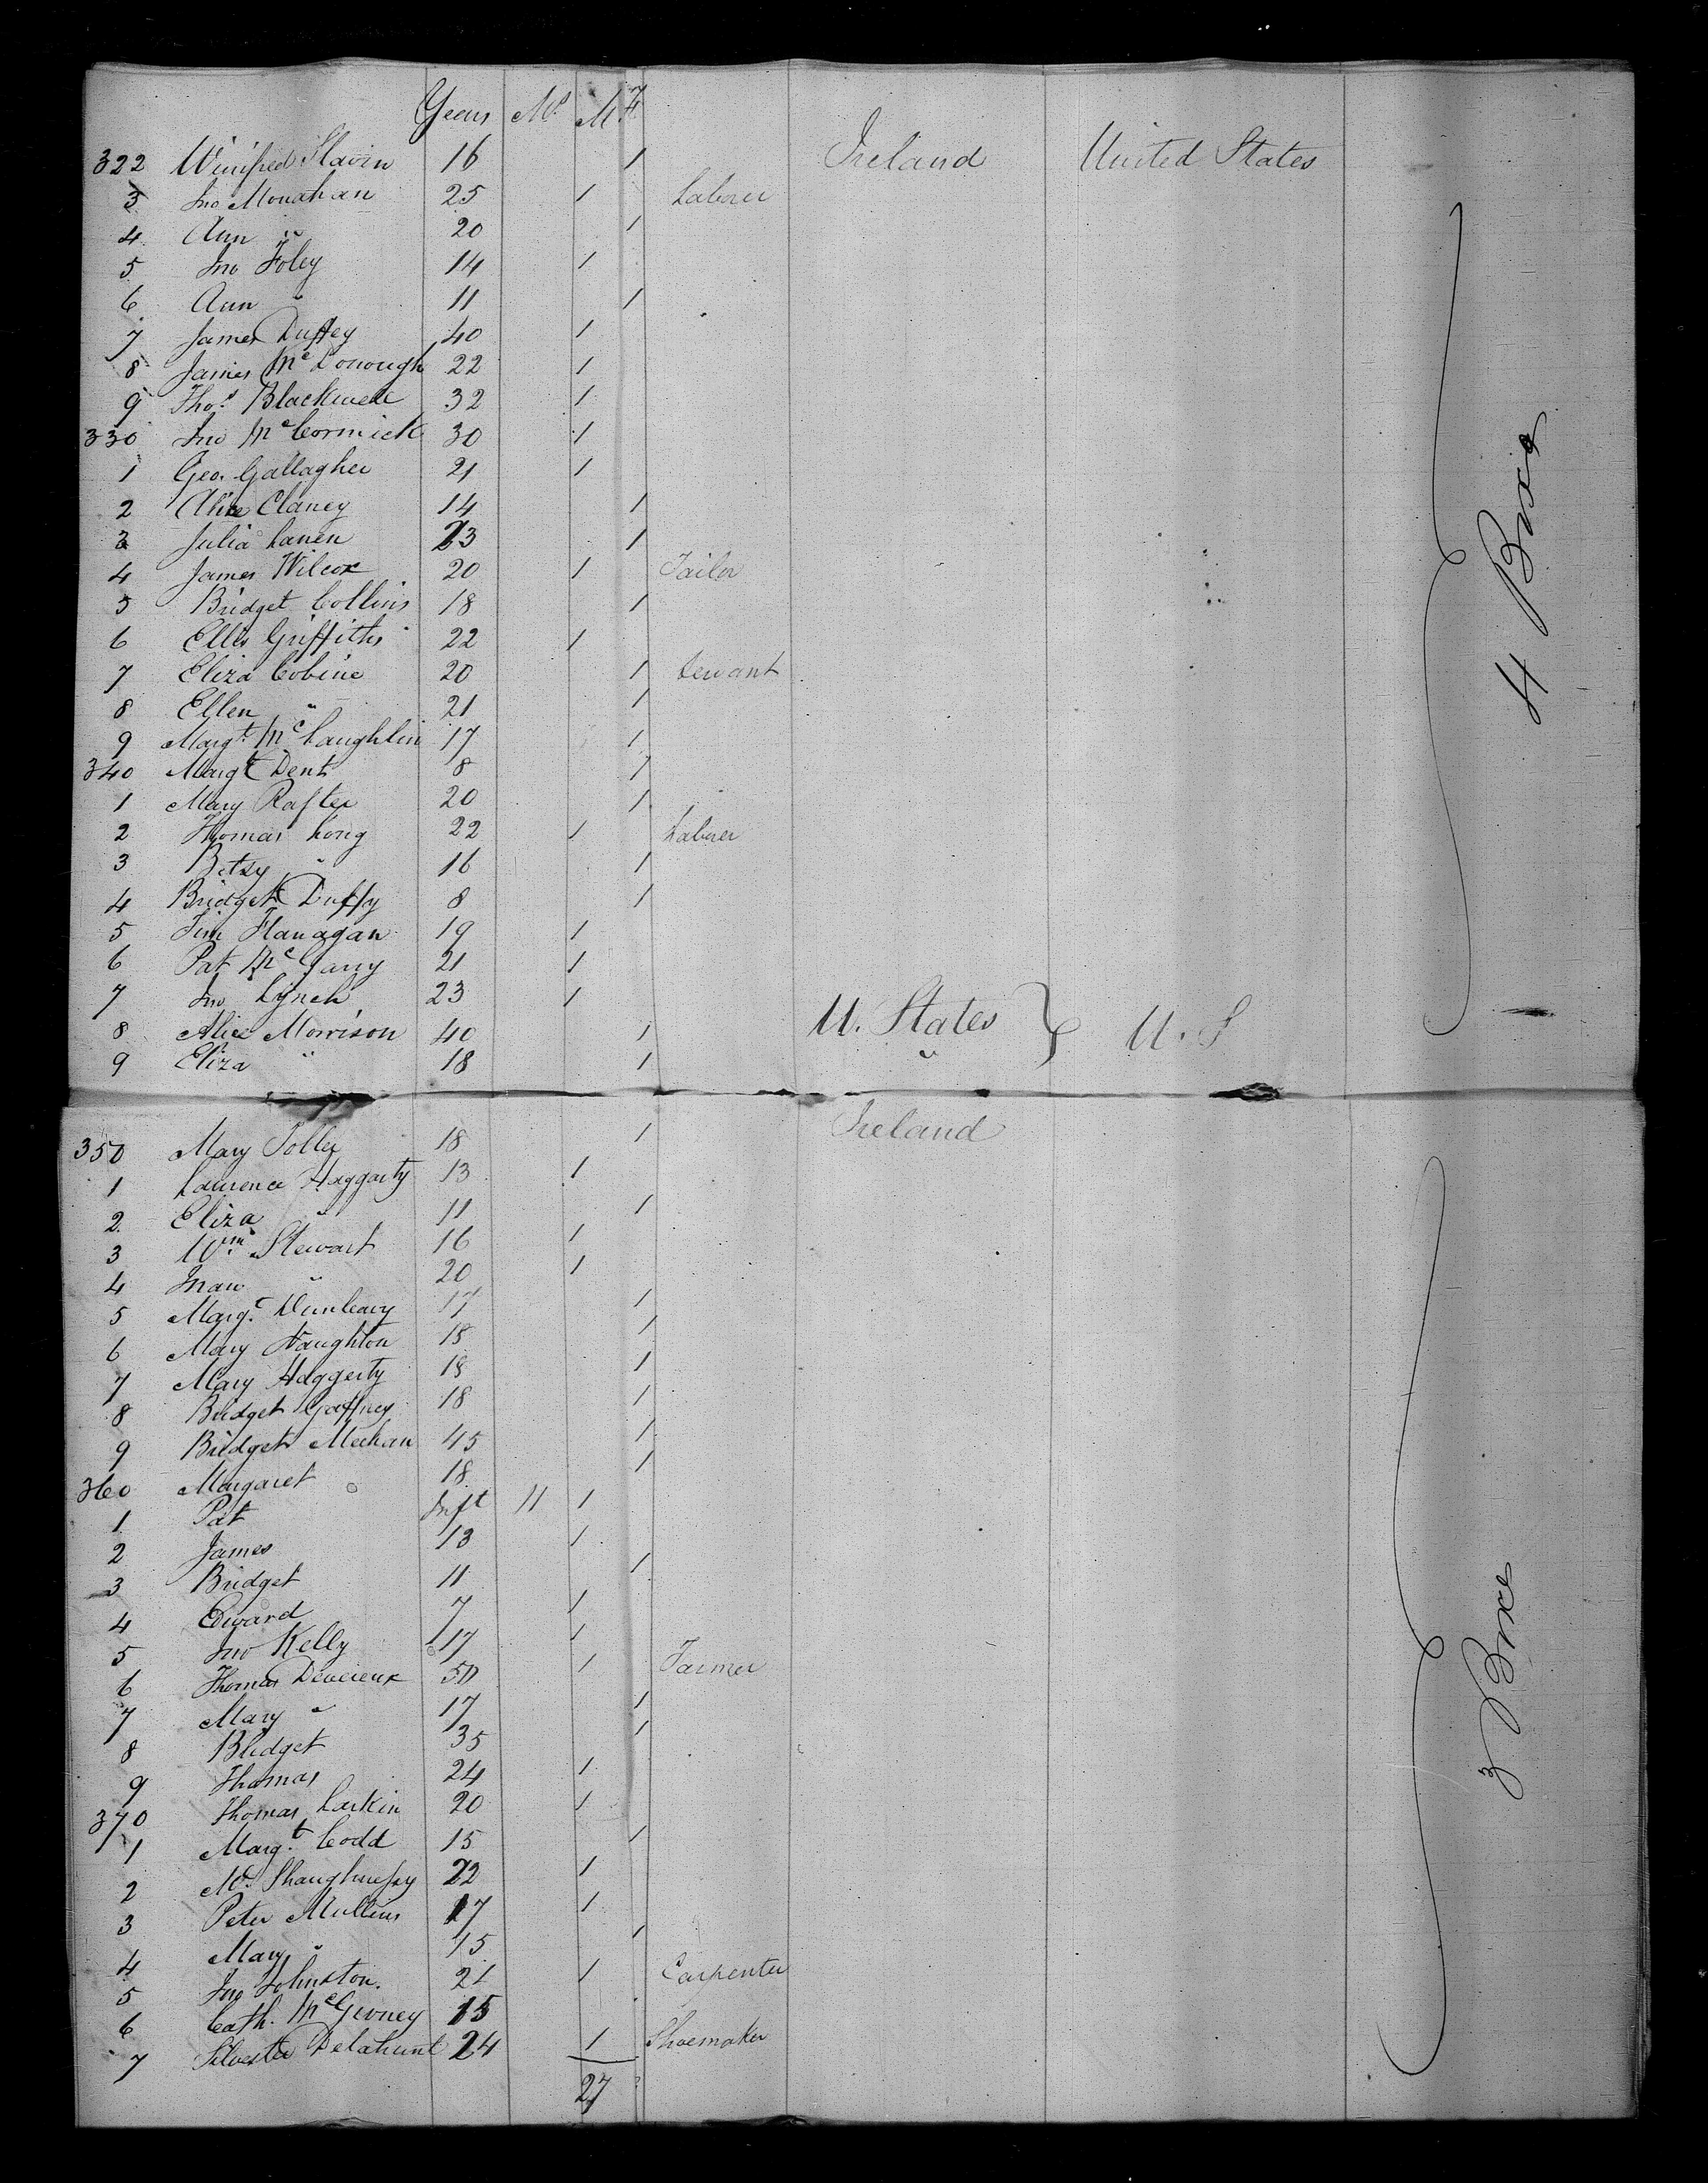 Years M.s M F
322 Winifred Slavin 16 1 Ireland United States
3 Jno Monahan 25 1 Laborer
4 Ann " 20 1
5 Jno Foley 14 1
6 Ann " 11 1
7 James Duffey 40 1
8 James McDonough 22 1
9 Thos. Blackwell 32 1
330 Jno McCormick 30 1
1 Geo. Gallagher 21 1
2 Alice Claney 14 1
3 Julia Laven 23 1
4 James Wilcox 20 1 Tailor
5 Bridget Collins 18 1
6 Ellis Griffiths 22 1
7 Eliza Cobine 20 1 Servant
8 Ellen " 21 1
9 Margt. McLaughlin 17 1
340 Margt Dent 8 1
1 Mary Rafter 20 1
2 Thomas Long 22 1 Laborer
3 Betsy " 16 1
4 Bridget Duffy 8 1
5 Tim Flanagan 19 1
6 Pat McGarry 21 1
7 Jno Lynch 23 1
8 Alice Morrison 40 1 U. States } U. S
9 Eliza " 18 1 "
4 Boxes
350 Mary 18 1 Ireland
1 Laurence Haggarty 13 1
2 Eliza " 11 1
3 Wm. Stewart 16 1
4 " 20 1
5 Margt. Dunleavy 17 1
6 Mary Naughton 18 1
7 Mary Haggerty 18 1
8 Bridget Gaffney 18 1
9 Bridget Meehan 45 1
360 Margaret 18 1
1 Pat Inft 11 1
2 James 13 1
3 Bridget 11 1
4 Edward 7 1
5 Jno Kelly 17 1
6 Thomas Devereux 50 1 Farmer
7 Mary " 17 1
8 Bridget 35 1
9 Thomas 24 1
370 Thomas Larkin 20 1
1 Margt. Codd 15 1
2 Shaughnessy 22 1
3 Peter Mullins 17 1
4 Mary " 15 1
5 Jno Johnston. 21 1 Carpenter
6 Cath. McGivney 15
7 Silvester Delahunt 24 1 Shoemaker
27
3 Boxes